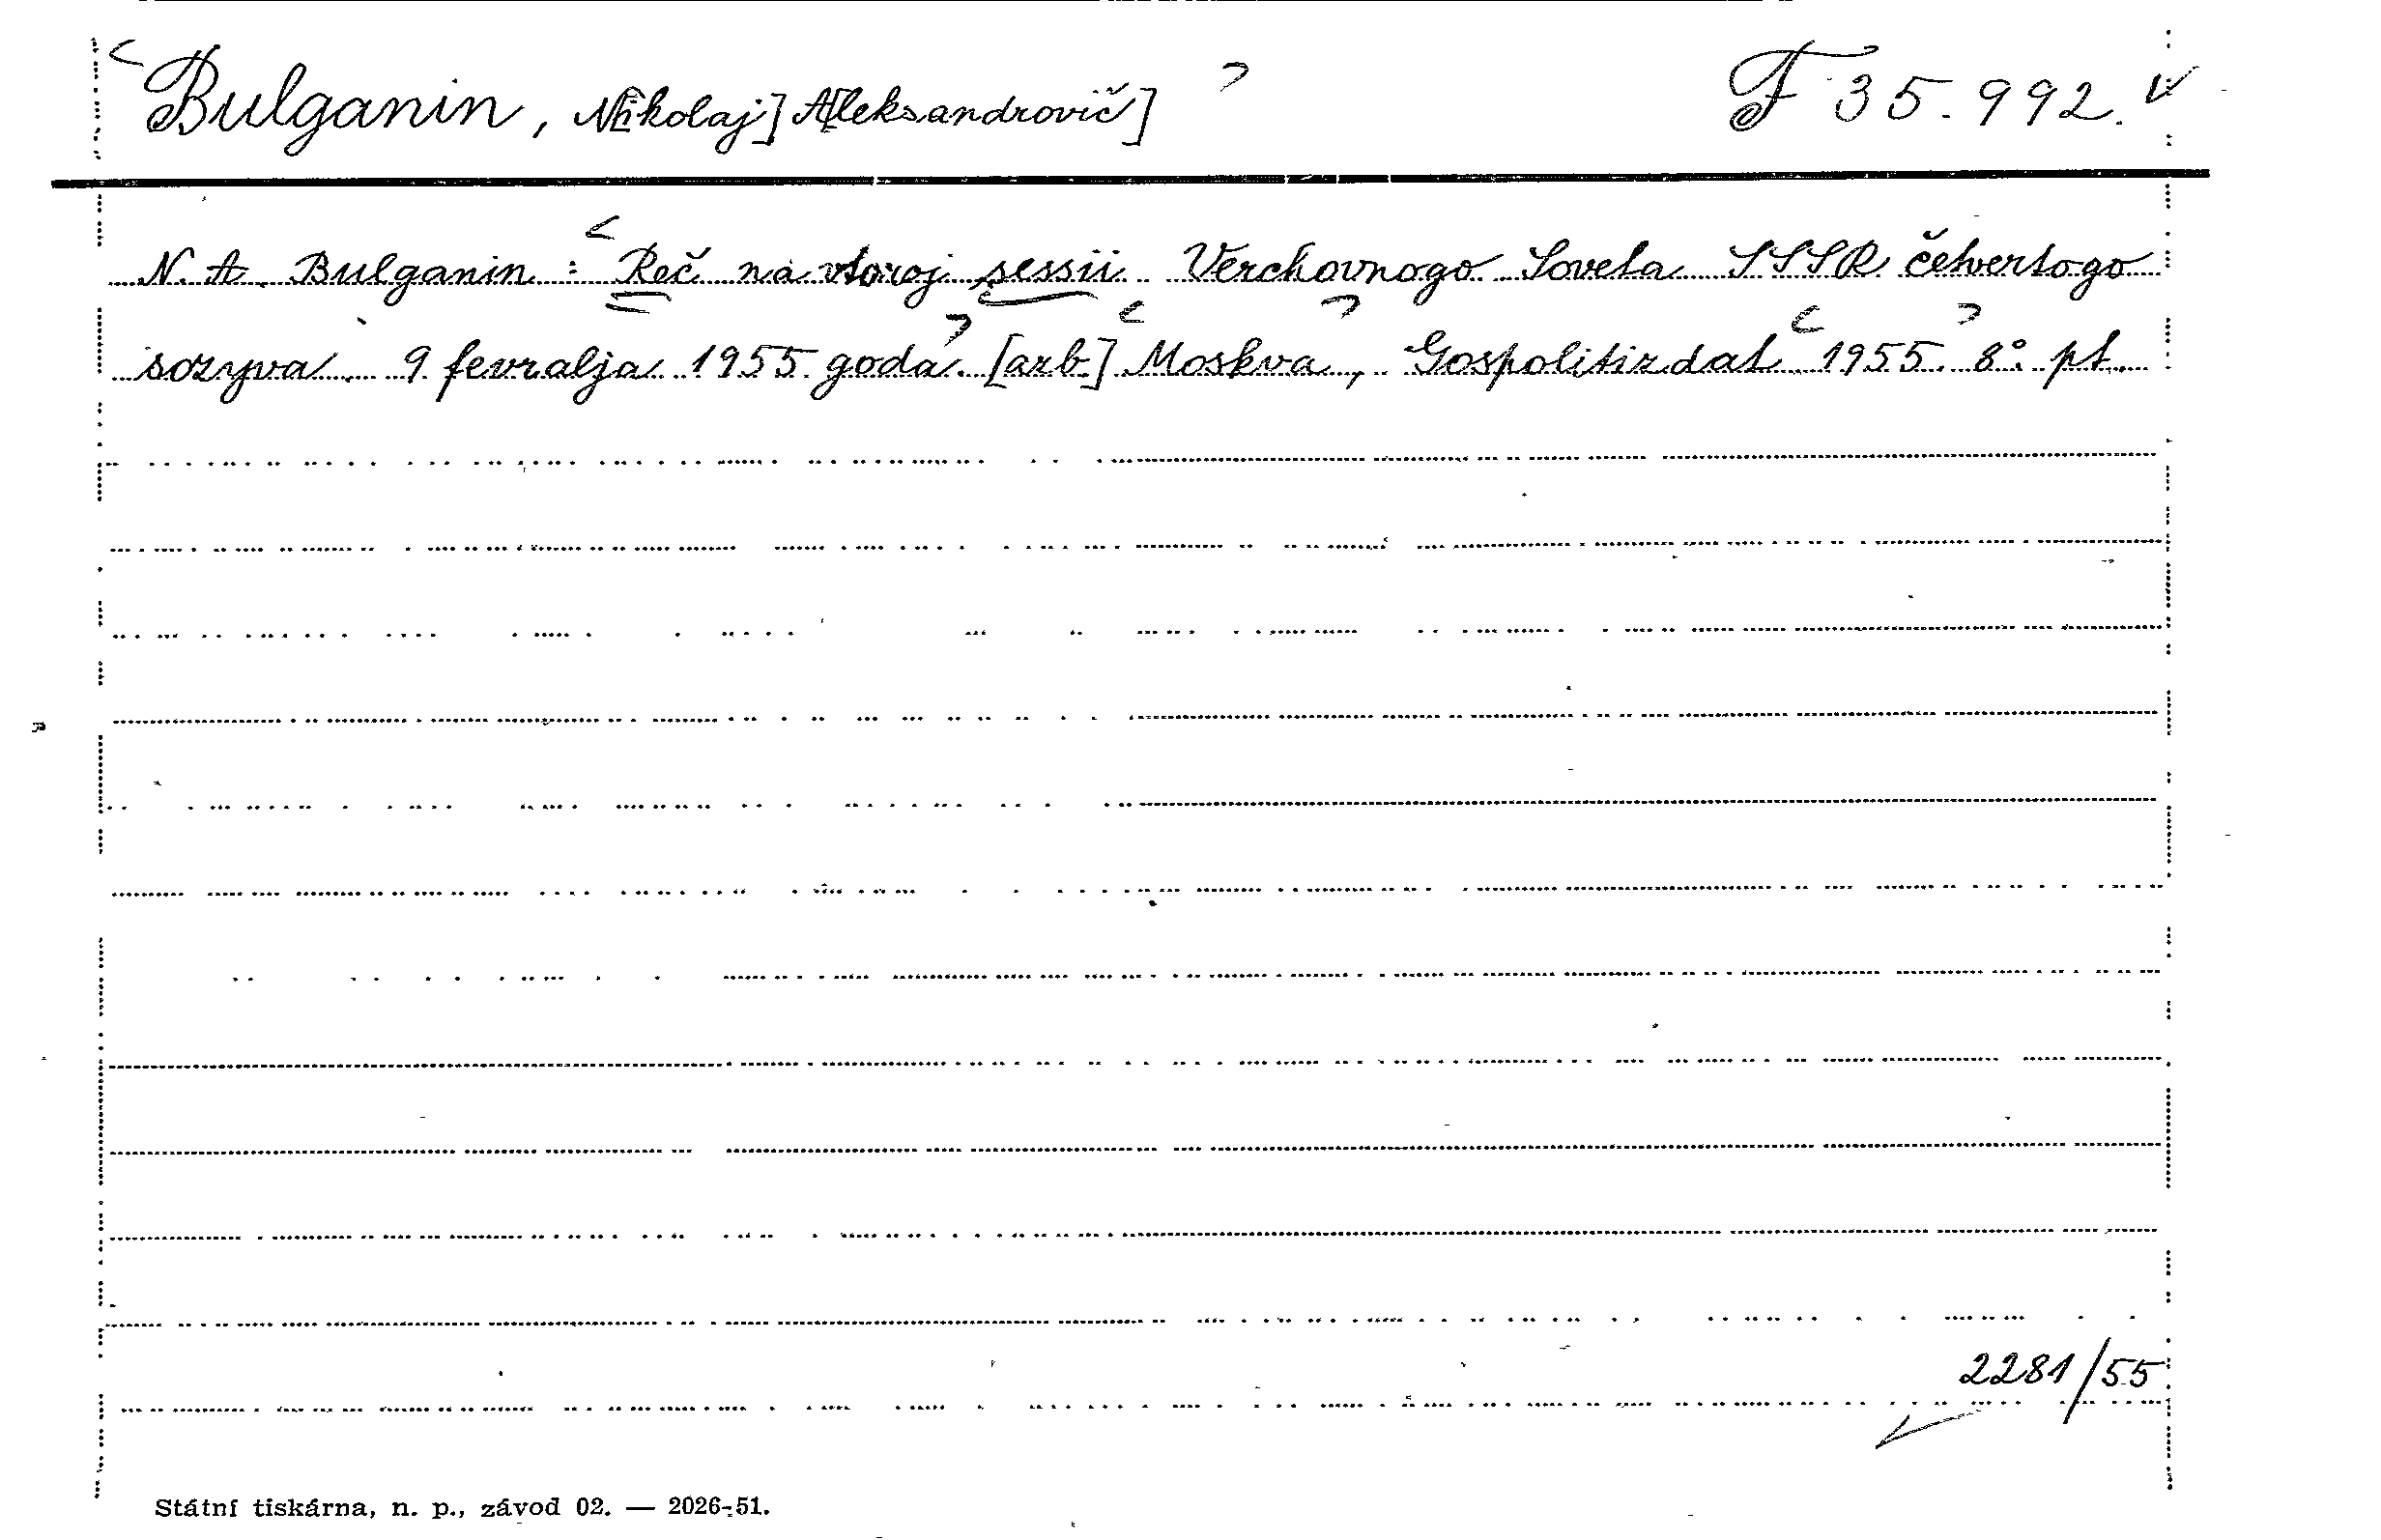 Bulganin, N[ikolaj] A[leksandrovič] F 35.992.
N. A. Bulganin: Reč na vtoroj sessii Verchovnogo Soveta SSSR četvertogo
sozyva. 9 fevralja 1955 goda. [azb.] Moskva, Gospolitizdat 1955. 8°. pt.
2281/55
Státní tiskárna, n. p., závod 02. — 2026-51.